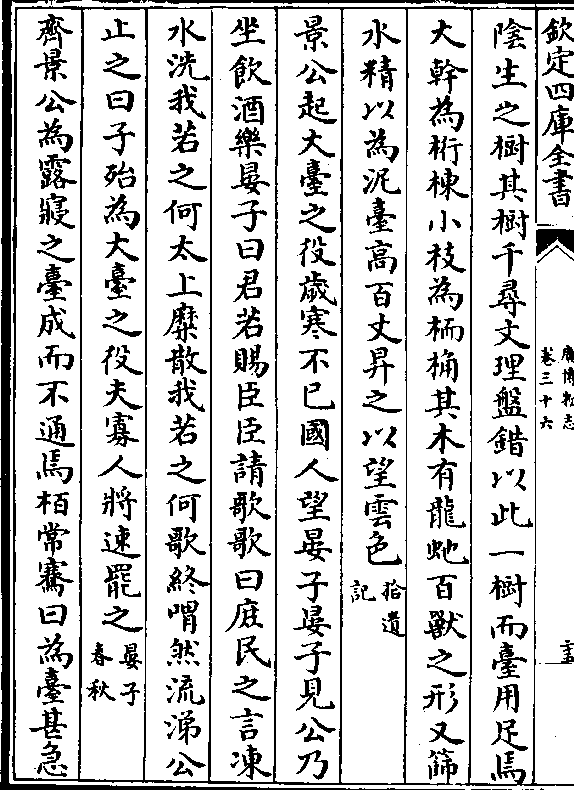 欽定四庫全書
廣博物志
卷三十六
陰生之樹其樹千尋文理盤錯以此一樹而臺用足焉
大幹為桁棟小枝為栭桷其木有龍虵百獸之形又篩
水精以為泥臺高百丈昇之以望雲色拾遺記
景公起大臺之役歲寒不已國人望晏子晏子見公乃
坐飲酒樂晏子曰君若賜臣臣請歌歌曰庶民之言凍
水洗我若之何太上靡散我若之何歌終喟然流涕公
止之曰子殆為大臺之役夫寡人將速罷之晏子春秋
齊景公為露寢之臺成而不通焉栢常騫曰為臺甚急